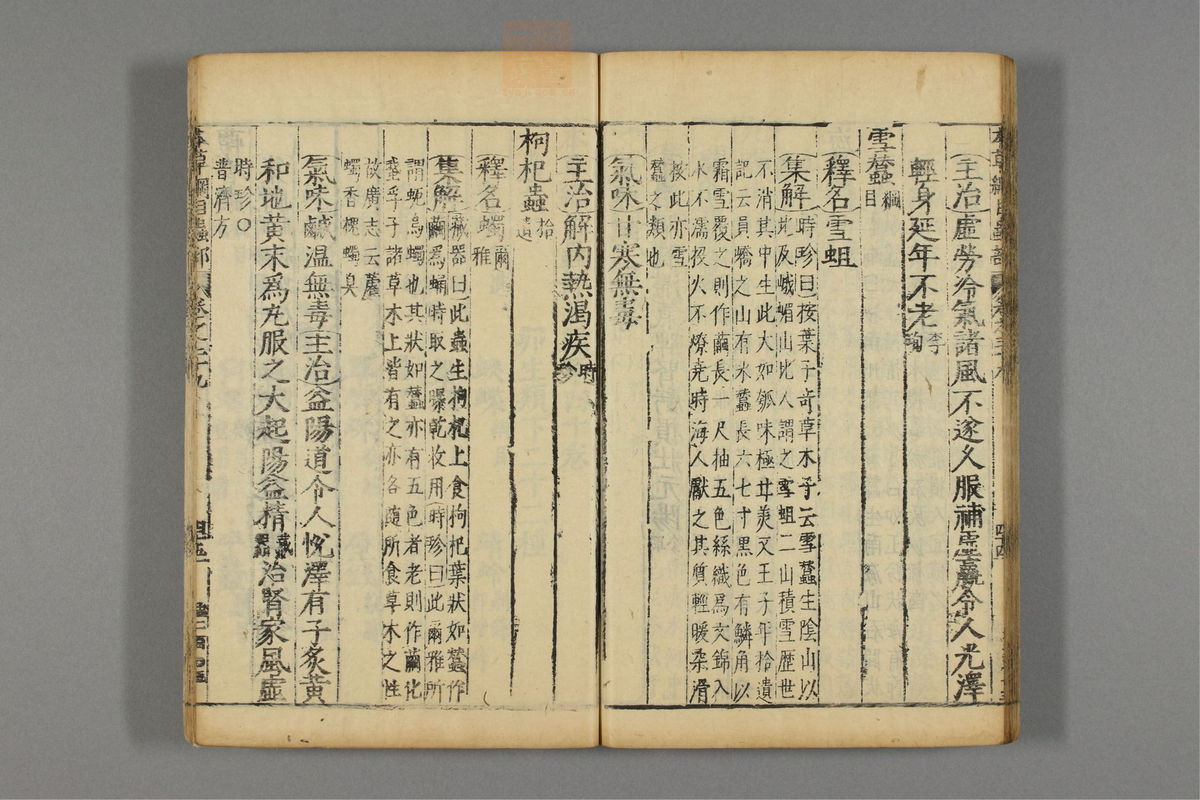 主治虛勞冷氣諸風不遂久服補虛羸令人光澤
輕身延年不老李珣
雪蠶綱目
釋名雪蛆
集解時珍曰按葉子奇草木子云雪蠶生陰山以
北及峨嵋山北人謂之雪蛆二山積雪歷世
不消其中生此大如瓠味極甘美又王子年拾遺
記云員嶠之山有冰蠶長六七寸黑色有鱗角以
霜雪覆之則作繭長一尺抽五色絲織為文錦入
水不濡投火不燎堯時海人獻之其質輕暖柔滑
按此亦雪
蠶之類也
氣味甘寒無毒
主治解內熱渴疾時珍
枸杞蟲拾遺
釋名蠋爾雅
集解藏器曰此蟲生枸杞上食枸杞葉狀如蠶作
繭為蛹時取之曝乾收用時珍曰此爾雅所
謂蚅烏蠋也其狀如蠶亦有五色者老則作繭化
蛾孚子諸草木上皆有之亦各隨所食草木之性
故廣志云藿
蠋香槐蠋臭
氣味鹹溫無毒主治益陽道令人悅澤有子炙黃
和地黃末為丸服之大起陽益精藏器治腎家風虛
時珍○
普濟方